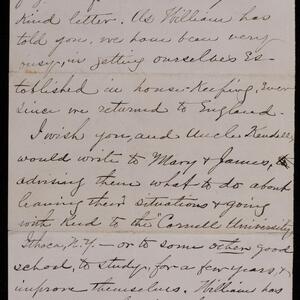 kind letter. As William has
told you, we have been very
busy, in getting ourselves es-
tablished in house-keeping, ever
since we returned to England.
I wish you, and Uncle Kendall,
would write to Mary & James,
advising them what to do about
leaving their situations & going
with Reed to the "Cornell University,
Ithaca, N.Y. — or to some other good
school, to study, for a few years, &
improve themselves. William has